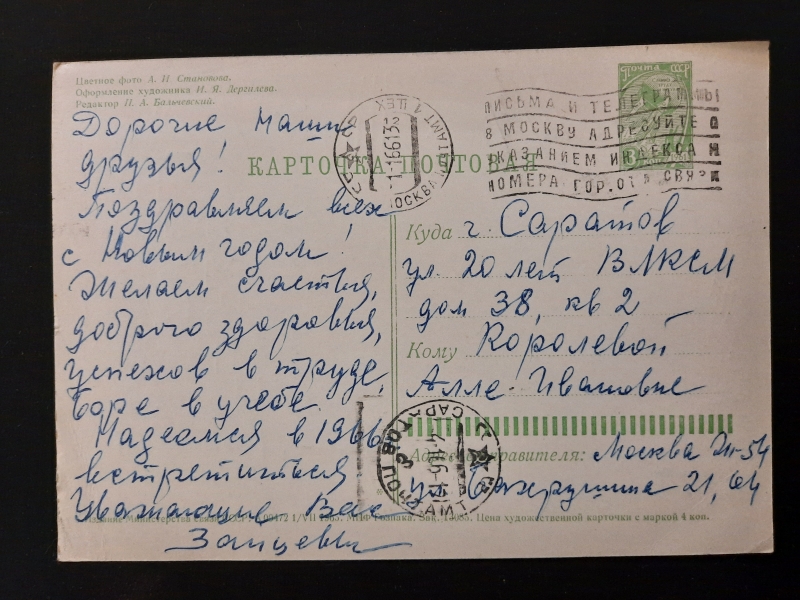 Цветное фото А. И. Становова.
Оформление художника И. Я. Дергалева.
Редактор П. А. Бальчевский.
Дорогие наши
друзья!
Поздравляем всех
с Новым годом!
Желаем счастья,
доброго здоровья,
успехов в труде,
Боре в учебе.
Надеемся в 1966
встретиться
Уважающие Вас
Зайцевы
КАРТОЧКА ПОЧТОВАЯ
ПОЧТА СССР
ПИСЬМА И ТЕЛЕГРАММЫ
В МОСКВУ АДРЕСУЙТЕ С
УКАЗАНИЕМ ИНДЕКСА И
НОМЕРА ГОР. ОТД СВЯЗИ
МОСКВА
Куда г. Саратов
ул. 20 лет ВЛКСМ
дом 38, кв 2
Кому Королевой
Алле Ивановне
САРАТОВ
Адрес отправителя: Москва Ж-54
ул. Бахрушина 21, 64
Издание Министерства связи 1/VII 1965. МПФ Гознака. Зак. Цена художественной карточки с маркой 4 коп.